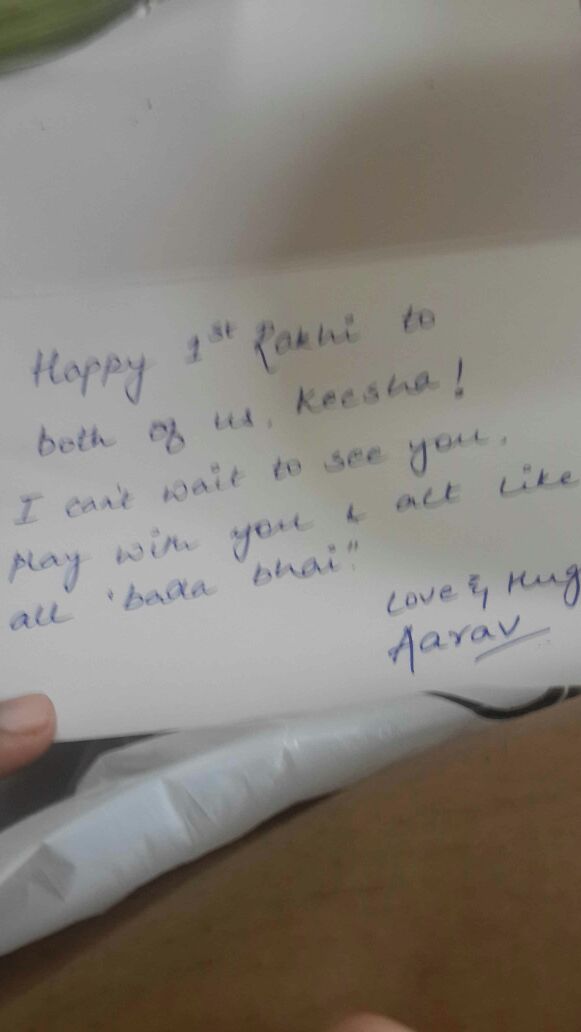 Happy 1st Rakhi to
both of us, Keesha!
I can't wait to see you,
play with you & act like
all "bada bhai".
Love & Hug
Aarav